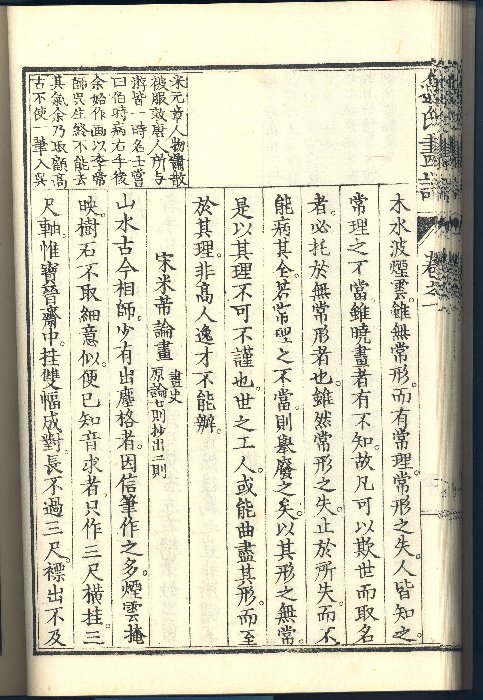 木水波煙雲雖無常形而有常理常形之失人皆知之
常理之不當雖曉畫者有不知故凡可以欺世而取名
者必托於無常形者也雖然常形之失止於所失而不
能病其全若常理之不當則舉廢之矣以其形之無常
是以其理不可不謹也世之工人或能曲盡其形而至
於其理非高人逸才不能辦
宋米芾論畫
畫史
原論七則抄出二則
山水古今相師少有出塵格者因信筆作之多煙雲掩
映樹石不取細意似便已知音求者只作三尺橫挂三
尺軸惟寶晉齋中挂雙幅成對長不過三尺褾出不及
米元章人物蕭散
被服效唐人所与
游皆一時名士嘗
曰伯時病右手後
余始作画以李常
師吳生終不能去
其氣余乃取顧高
古不使一筆入吳
畫譜
卷之一